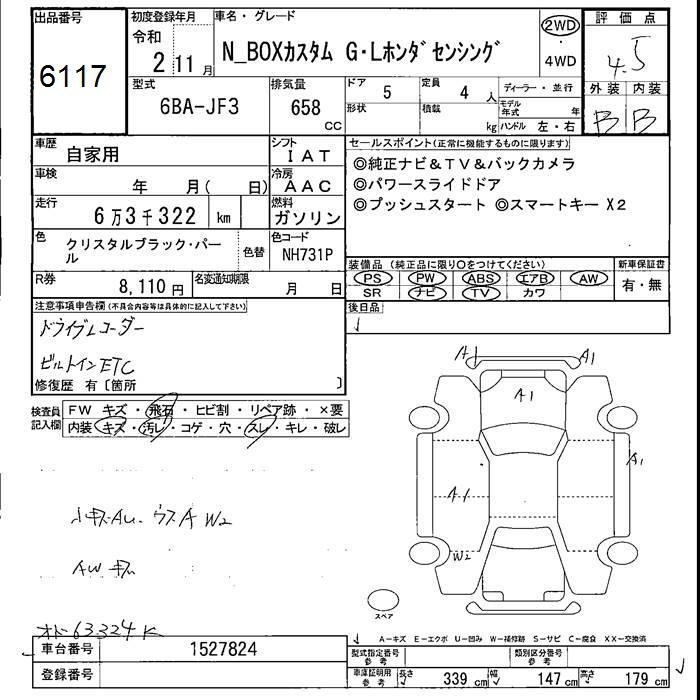 出品番号
6117
初度登録年月
令和
2 11月
車名・グレード
N_BOXカスタム G・Lホンダセンシング
2WD
・
4WD
評価点
4.5
外装 内装
B B
型式
6BA-JF3
排気量
658
CC
ドア
5
定員
4人
形状
積載
kg
ディーラー・並行
モデル年式 年
ハンドル 左・右
車歴
自家用
シフト
IAT
車検
年 月( 日)
冷房
AAC
走行
6万3千322 km
燃料
ガソリン
色
クリスタルブラック・パール
色替
色コード
NH731P
R券
8,110円
名変通知期限
月 日
セールスポイント(正常に機能するものに限ります)
◎純正ナビ&TV&バックカメラ
◎パワースライドドア
◎プッシュスタート ◎スマートキー X2
装備品 (純正品に限り○をつけてください)
PS PW ABS エアB AW
SR ナビ TV カワ
新車保証書
有・無
後日品
注意事項申告欄(不具合内容等は具体的に記入して下さい)
ドライブレコーダー
ビルトインETC
修復歴 有〔箇所 〕
検査員記入欄
FW キズ・飛石・ヒビ割・リペア跡・×要
内装 キズ・汚レ・コゲ・穴・スレ・キレ・破レ
小キズAU. ウスA W2
AWキズ
オド63324K
A1
A1
A1
A1
A1
W2
スペア
A-キズ E-エクボ U-凹み W-補修跡 S-サビ C-腐食 XX-交換済
車台番号
1527824
登録番号
型式指定番号
参考
類別区分番号
参考
車庫証明用
参考
長さ 339 cm 幅 147 cm 高さ 179 cm